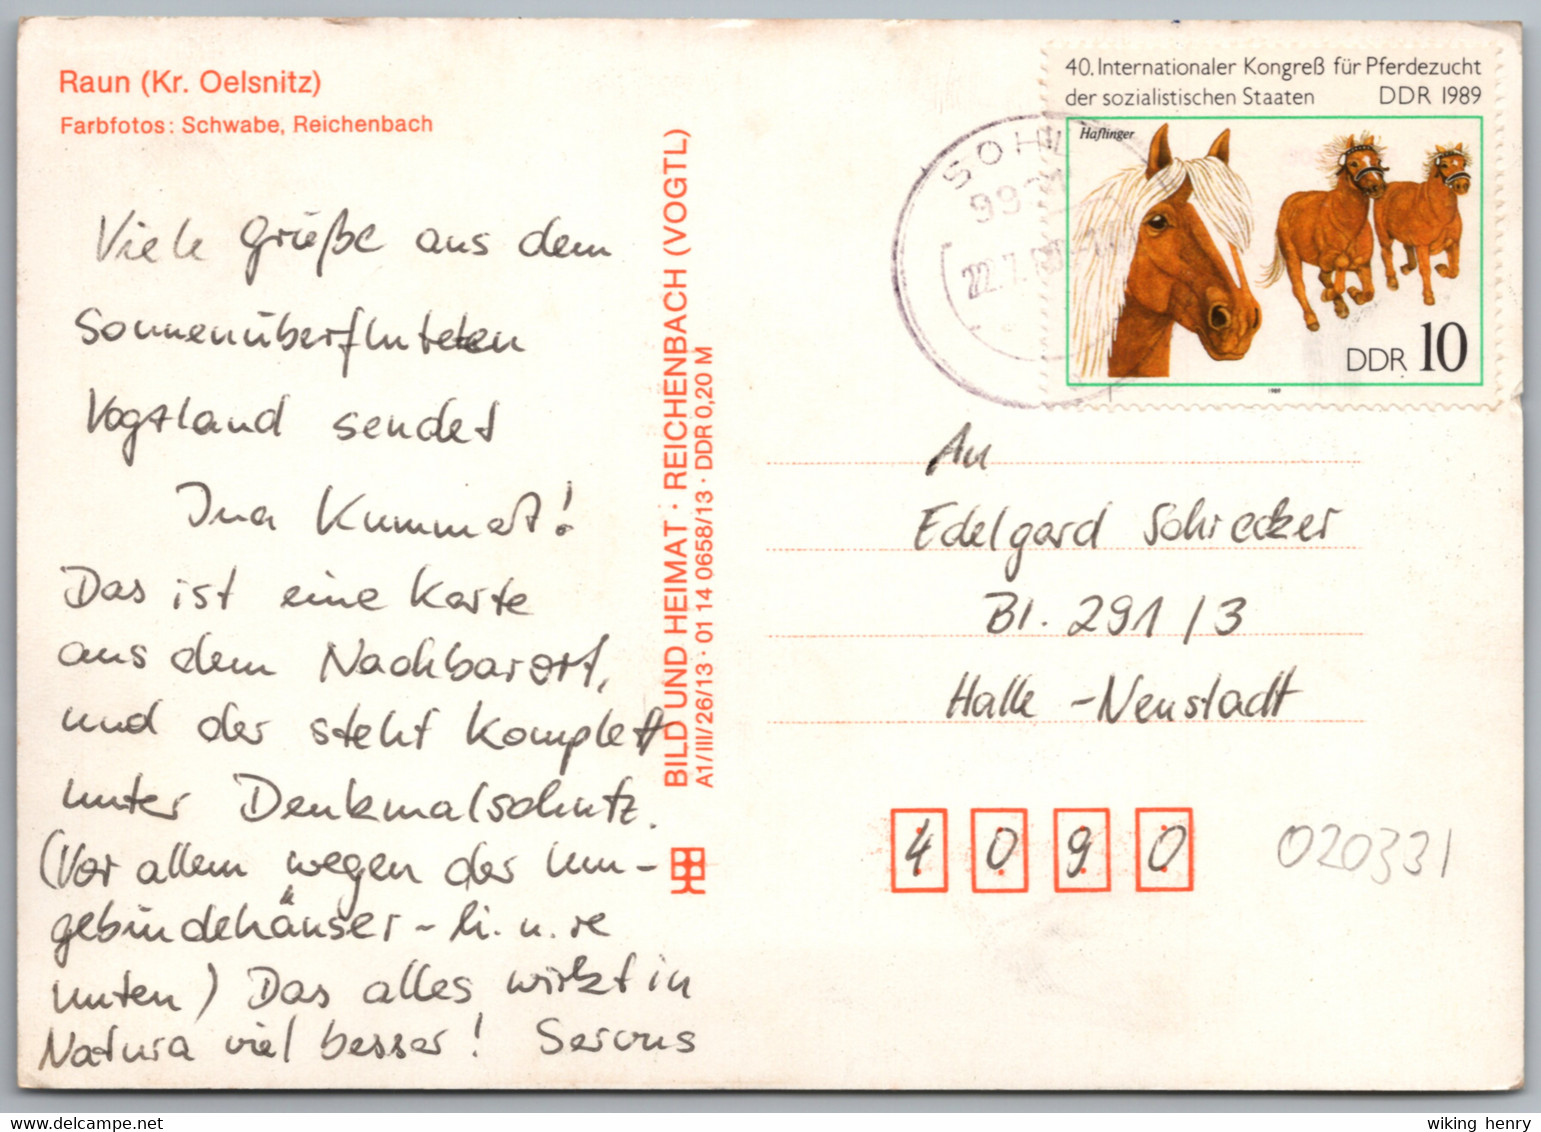 Raun (Kr. Oelsnitz)
Farbfotos: Schwabe, Reichenbach
Viele Grüße aus dem
Sonnenüberfluteten
Vogtland sendet
Ina Kummet!
Das ist eine Karte
aus dem Nachbarort,
und der steht komplett
unter Denkmalschutz.
(Vor allem wegen der Um-
gebindehäuser - li. u. re
unten) Das alles wirkt in
Natura viel besser! Servus
BILD UND HEIMAT · REICHENBACH (VOGTL)
A1/III/26/13 · 01 14 0658/13 · DDR 0,20 M
40. Internationaler Kongreß für Pferdezucht
der sozialistischen Staaten DDR 1989
Haflinger
DDR 10
1989
SOHL
22.7.
An
Edelgard Schrecker
Bl. 291/3
Halle-Neustadt
4090
020331
wiking henry